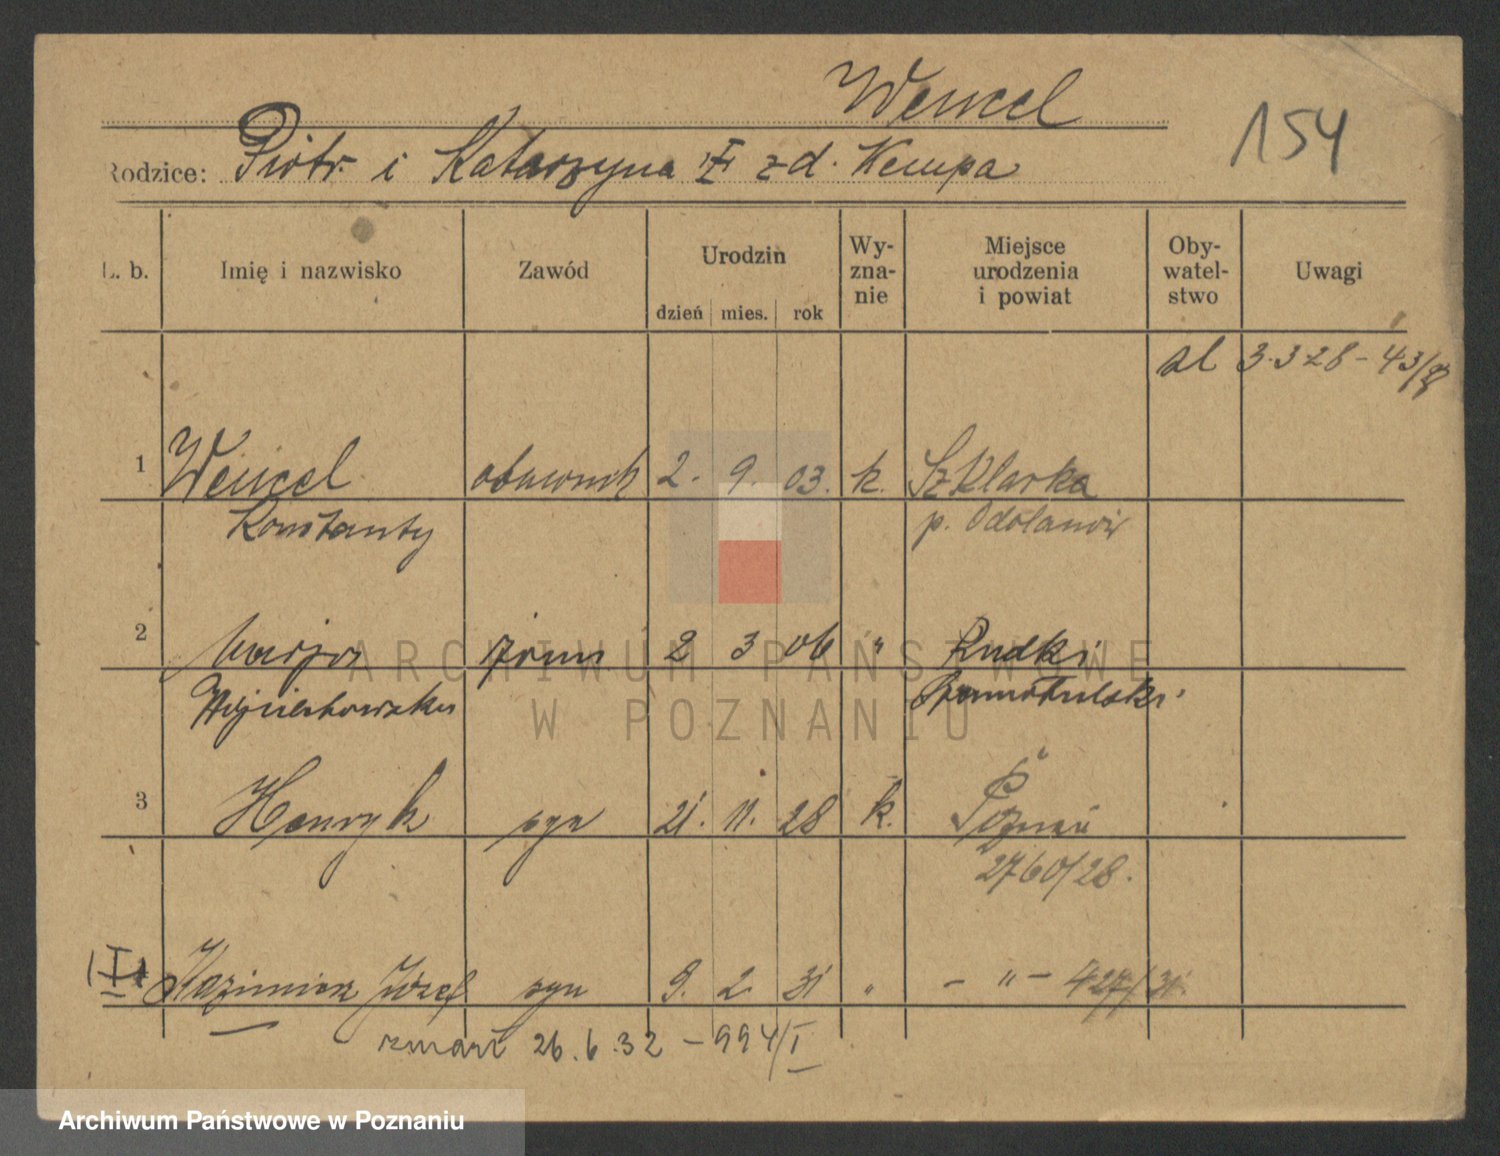 Wencel
154
Rodzice: Piotr i Katarzyna zd. Kempa
L. b. Imię i nazwisko Zawód Urodzin dzień mies. rok Wy-zna-nie Miejsce urodzenia i powiat Oby-watel-stwo Uwagi
sl 3.3 28 - 43/28
1 Wencel obuwnik 2. 9. 03. k. Szklarka
Konstanty p. Odolanów
2 Marja żona 2 3 06 " Rudki
Wojciechowska Szamotulski
3 Henryk syn 21. 11. 28 k. Poznań
2760/28.
Kazimierz Józef syn 9. 2 31 " - " - 427/31.
zmarł 26.6.32 - 994/I
ARCHIWUM PAŃSTWOWE
W POZNANIU
Archiwum Państwowe w Poznaniu